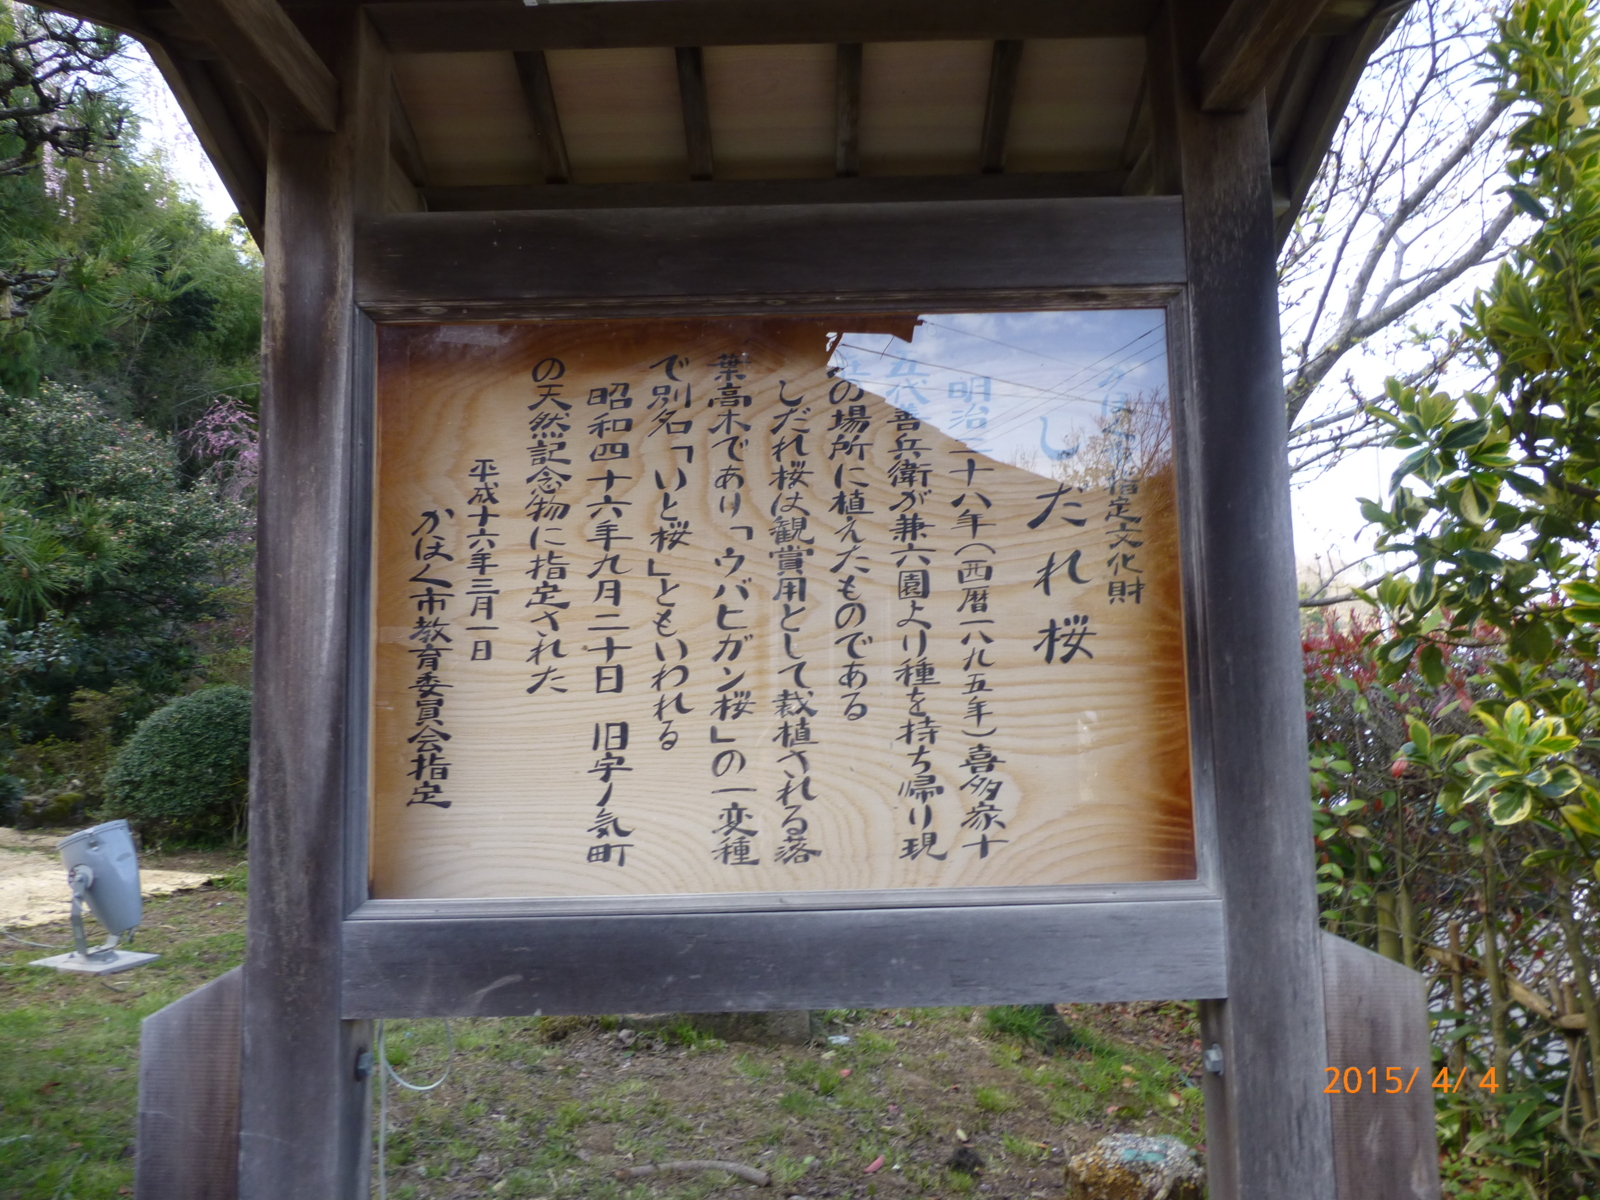 かほく市指定文化財
しだれ桜
明治二十八年(西暦一八九五年)喜多家十
五代善兵衛が兼六園より種を持ち帰り現
在の場所に植えたものである
しだれ桜は観賞用として栽植される落
葉高木であり「ウバヒガン桜」の一変種
で別名「いと桜」ともいわれる
昭和四十六年九月二十日 旧宇ノ気町
の天然記念物に指定された
平成十六年三月一日
かほく市教育委員会指定
2015/ 4/ 4